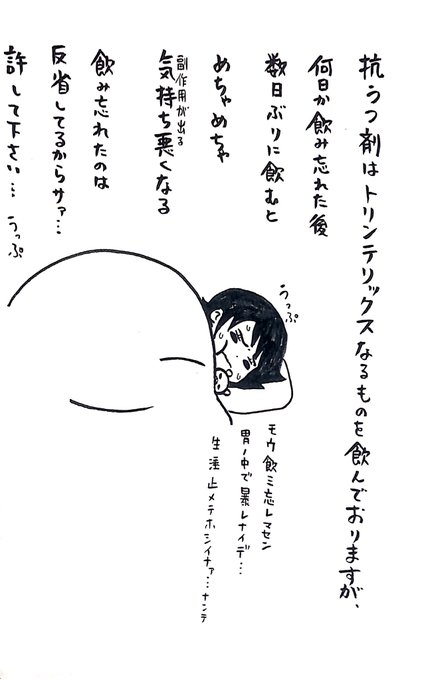 抗うつ剤はトリンテリックスなるものを飲んでおりますが、
何日か飲み忘れた後
数日ぶりに飲むと
めちゃめちゃ
副作用が出る
気持ち悪くなる
飲み忘れたのは
反省してるからサァ…
許して下さい… うっぷ
うっぷ
モウ飲ミ忘レマセン
胃ノ中で暴レナイデ…
生唾止メテホシイナァ…ナンテ